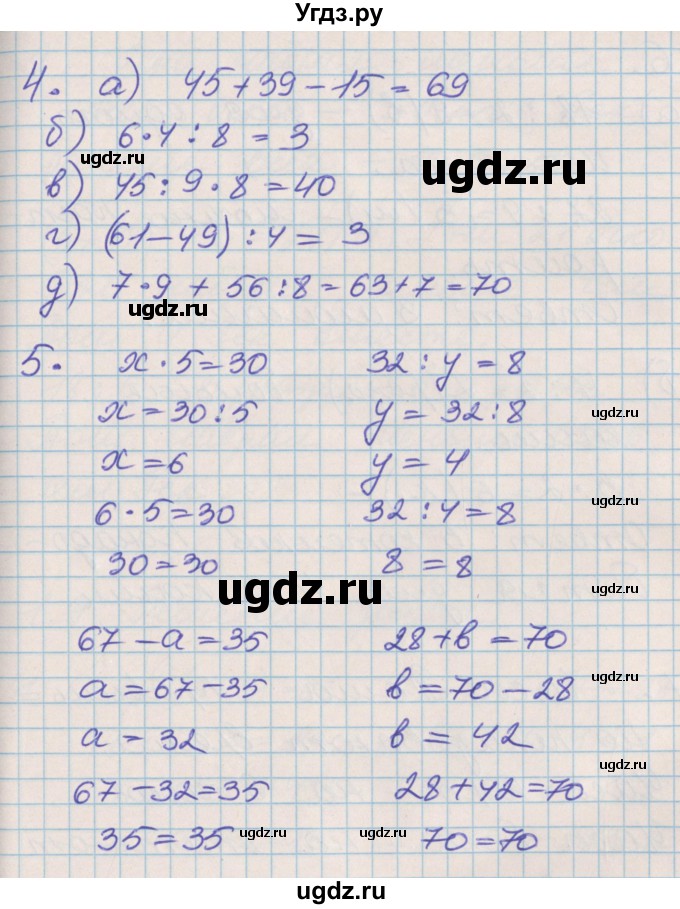 Угдз.ру
4. а) 45+39-15=69
б) 6·4:8=3
в) 45:9·8=40
г) (61-49):4=3
д) 7·9+56:8=63+7=70
5. x·5=30
x=30:5
x=6
6·5=30
30=30
32:y=8
y=32:8
y=4
32:4=8
8=8
67-a=35
a=67-35
a=32
67-32=35
35=35
28+в=70
в=70-28
в=42
28+42=70
70=70
ugdz.ru
ugdz.ru
ugdz.ru
ugdz.ru
ugdz.ru
ugdz.ru
ugdz.ru
ugdz.ru
ugdz.ru
ugdz.ru
ugdz.ru
ugdz.ru